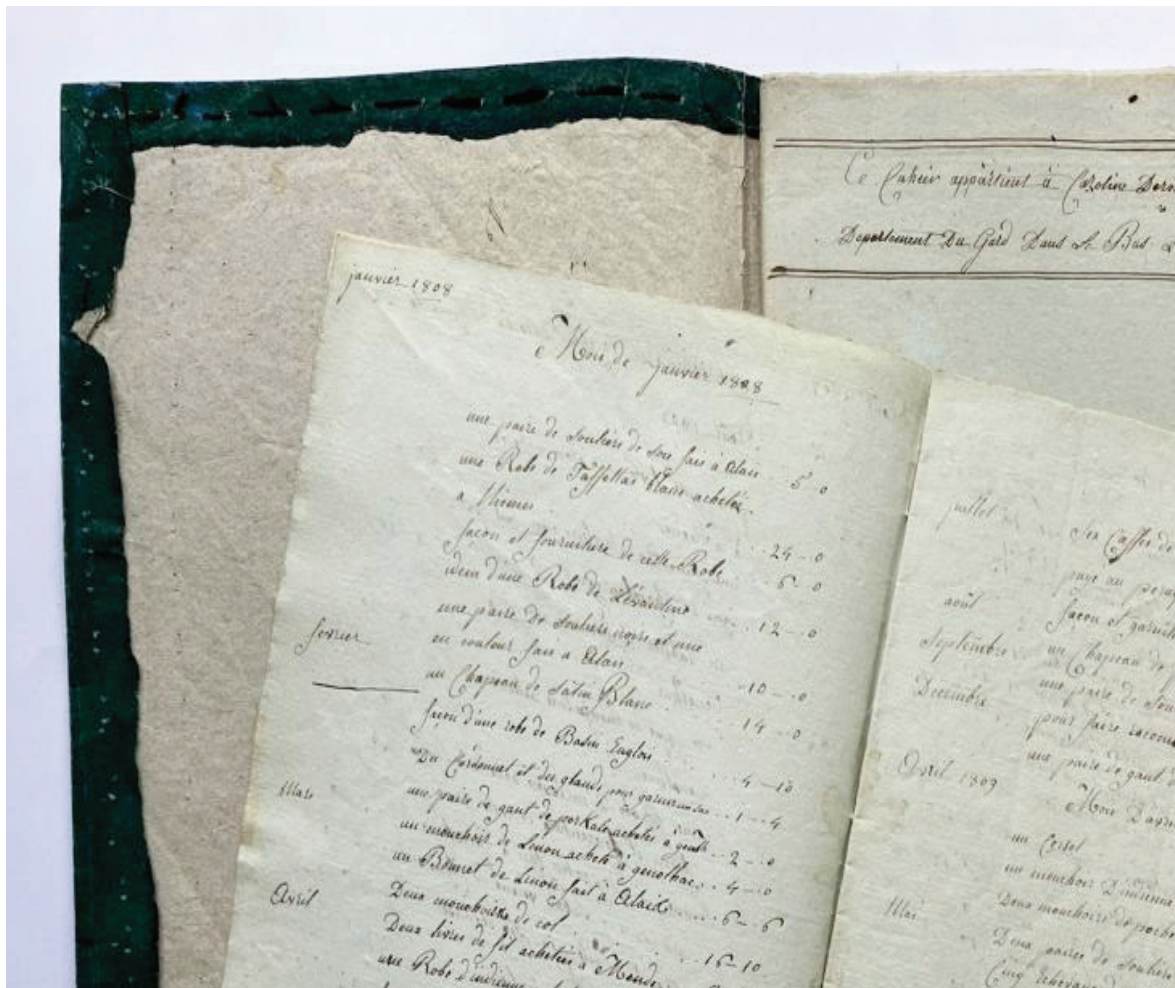 Ce Cahier appartient à Caroline
Departement Du Gard Dans Le Bas
janvier 1808
Mois de janvier 1808
une paire de souliers de soie fais à Alais 5 0
une Robe de Taffettas blanc achetée
a Nimes
24 - 0
façon et fourniture de cette Robe 6 - 0
idem d'une Robe de Lévantine 12 - 0
une paire de souliers noirs et une
fevrier
en couleur fais a Alais 10 - 0
un Chapeau de Satin Blanc 14 - 0
façon d'une robe de Basin Englois 4 - 10
Du Cordonnet et des glands pour garnir un sac 1 - 4
Mars
une paire de gant de perkale achetés à 2 - 0
un mouchoir de Linon acheté à genolhac 4 - 0
un Bonnet de Linon fait à Alais 6 - 6
Avril
Deux mouchoirs de col 15 - 10
Deux livres de fil achetées a Mende
une Robe d'indienne
juillet
août
façon et
Septembre
un Chapeau de
une paire de
Decembre
pour faire
une paire de gant
Avril 1809
Mois D'avril
un Corset
un mouchoir D'indienne
Deux mouchoirs de poche
Mai
Deux paires de souliers
Cinq